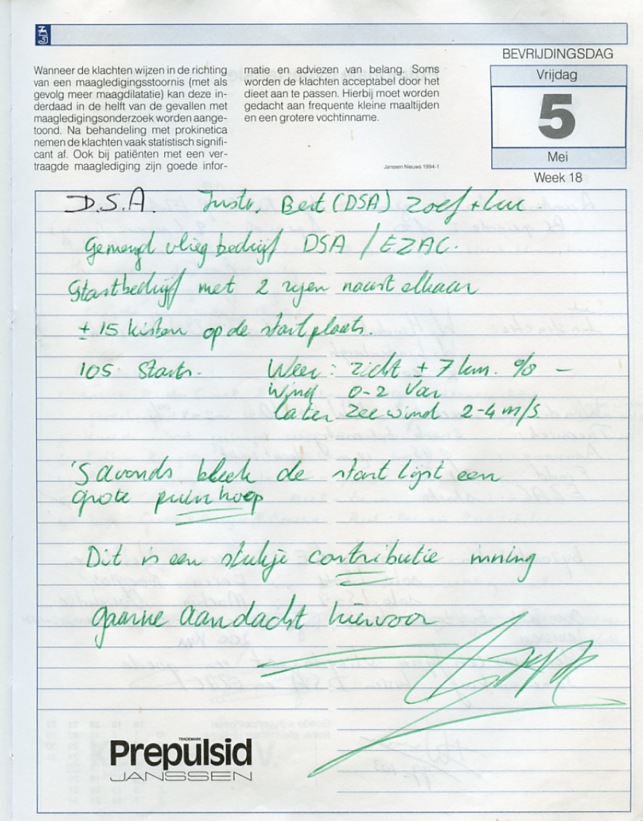 BEVRIJDINGSDAG
Vrijdag
5
Mei
Week 18
Wanneer de klachten wijzen in de richting
van een maagledigingsstoornis (met als
gevolg meer maagdilatatie) kan deze in-
derdaad in de helft van de gevallen met
maagledigingsonderzoek worden aange-
toond. Na behandeling met prokinetica
nemen de klachten vaak statistisch signifi-
cant af. Ook bij patiënten met een ver-
traagde maaglediging zijn goede infor-
matie en adviezen van belang. Soms
worden de klachten acceptabel door het
dieet aan te passen. Hierbij moet worden
gedacht aan frequente kleine maaltijden
en een grotere vochtinname.
Janssen Nieuws 1994-1
D.S.A. Instr. Bert (DSA) Zoef + Luc.
Gemengd vliegbedrijf DSA / EZAC.
Startbedrijf met 2 rijen naast elkaar
± 15 kisten op de startplaats.
105 Starts. Weer: zicht ± 7 km. % -
wind 0-2 Var
later Zeewind 2-4 m/s
's avonds bleek de startlijst een
grote puinhoop
Dit is een stukje contributie inning
gaarne aandacht hiervoor
TRADEMARK
Prepulsid
JANSSEN